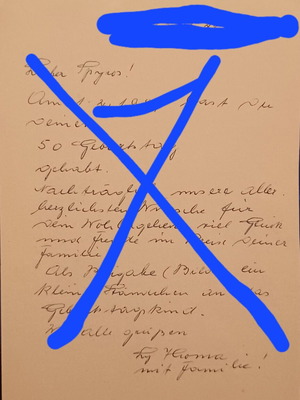 Lieber Spyros!
hast Du
Deinen
50-Geburtstag
gehabt.
Nachträglich unsere aller
herzlichsten Wünsche für
Dein Wohlergehen viel Glück
und Freude im Kreise Deiner
Familie.
Als Beigabe ein
klein an das
Geburtstagskind.
alle grüßen
mit Familie!